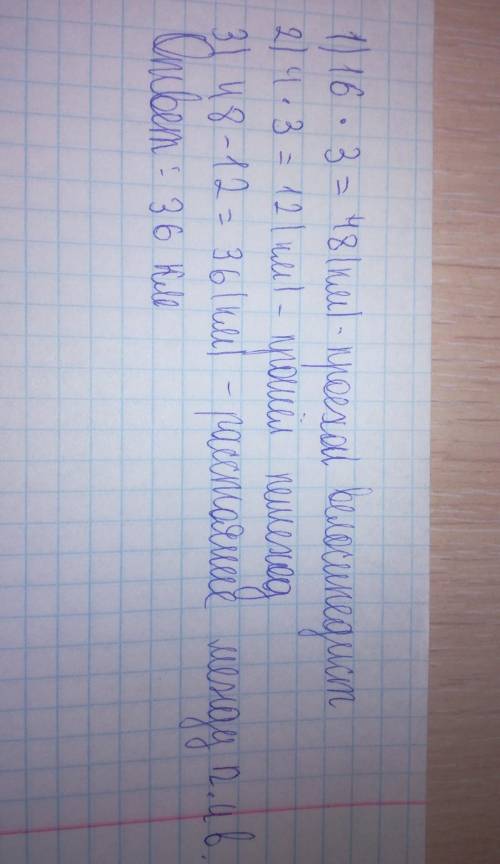 1) 16 · 3 = 48 (км) - проехал велосипедист
2) 4 · 3 = 12 (км) - прошёл пешеход
3) 48 - 12 = 36 (км) - расстояние между п. и в.
Ответ: 36 км